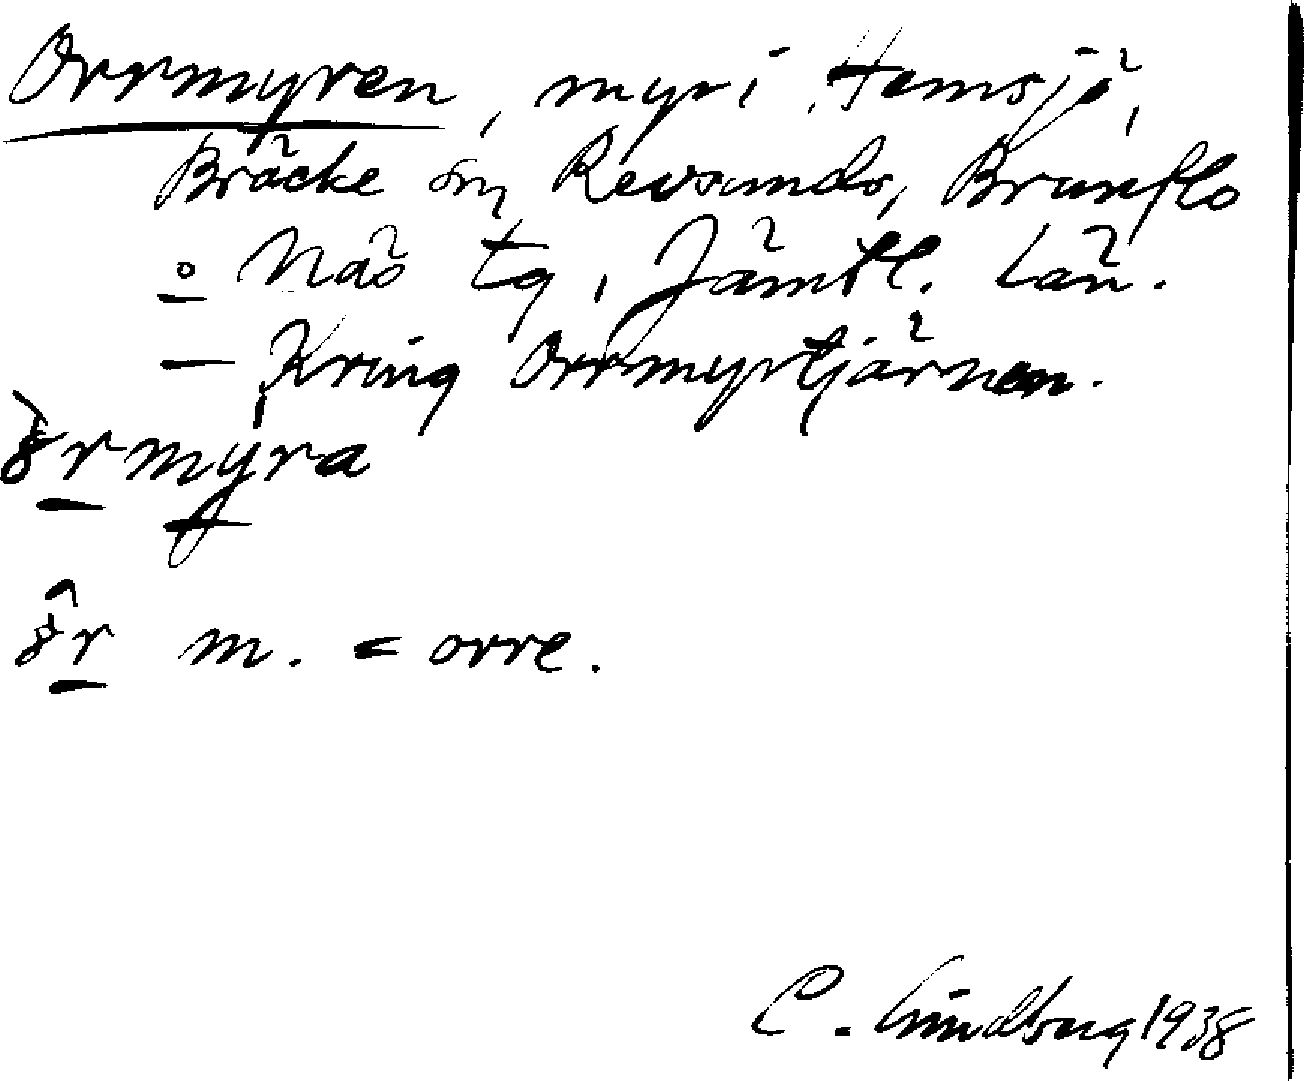 Orrmyren, myr i Hemsjö,
Bräcke sn, Revsunds, Brunflo
o. Näs tg, Jämtl. län.
— Kring Orrmyrtjärnen.
m. = orre.
C. Lindberg 1938